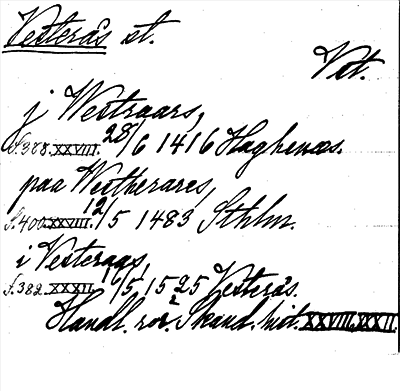 Vesterås st.
Vst.
j Westraars,
S. 388. XXVIII. 28/6 1416 Haghenæs.
paa Westherares,
S. 400. XXVIII. 12/5 1483 Sthlm.
i Vesteraas,
S. 382. XXXII. 16/5, 1525 Vesterås.
Handl. rör. Skand. hist. XXVIII, XXXII.